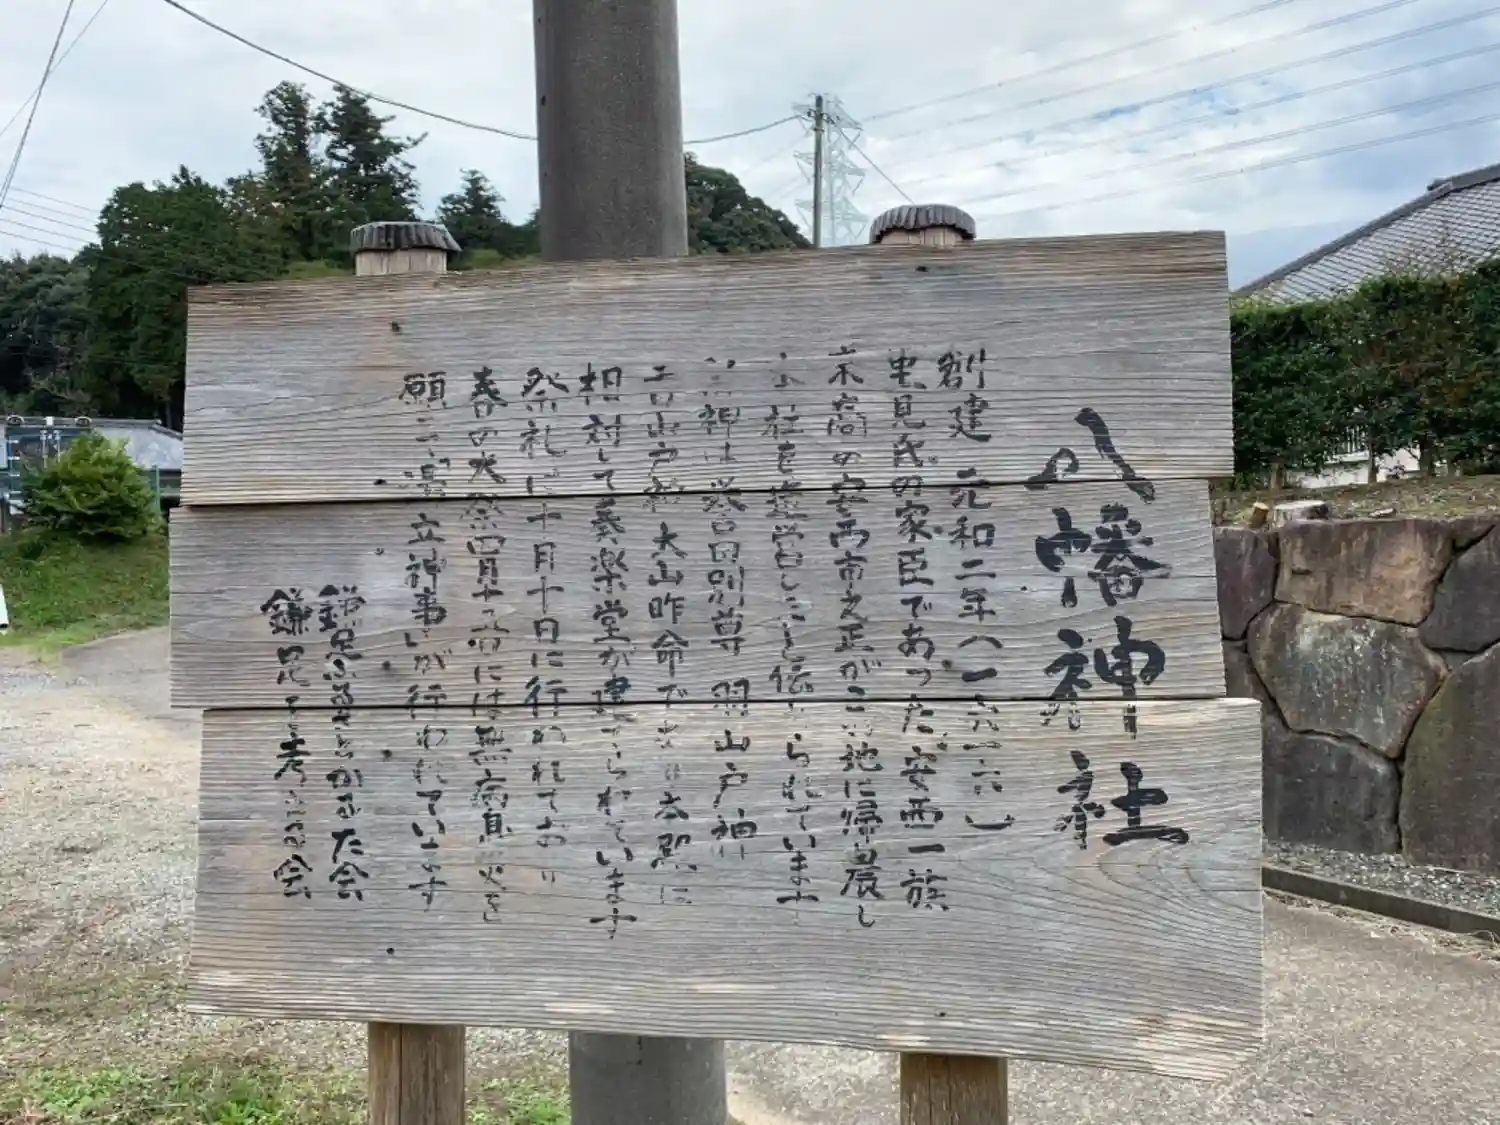 八幡神社
創建 元和二年(一六一六)
里見氏の家臣であった安西一族
末裔の安西市之正がこの地に帰農し
当社を造営したと伝えられています
祭神は誉田別尊 羽山戸神
大山昨命で 本殿に
相対して奏楽堂が建てられています
祭礼は十月十日に行われており
春の大祭四月十五日には無病息災を
願って湯立神事が行われています
鎌足ふるさとかるた会
鎌足を考える会